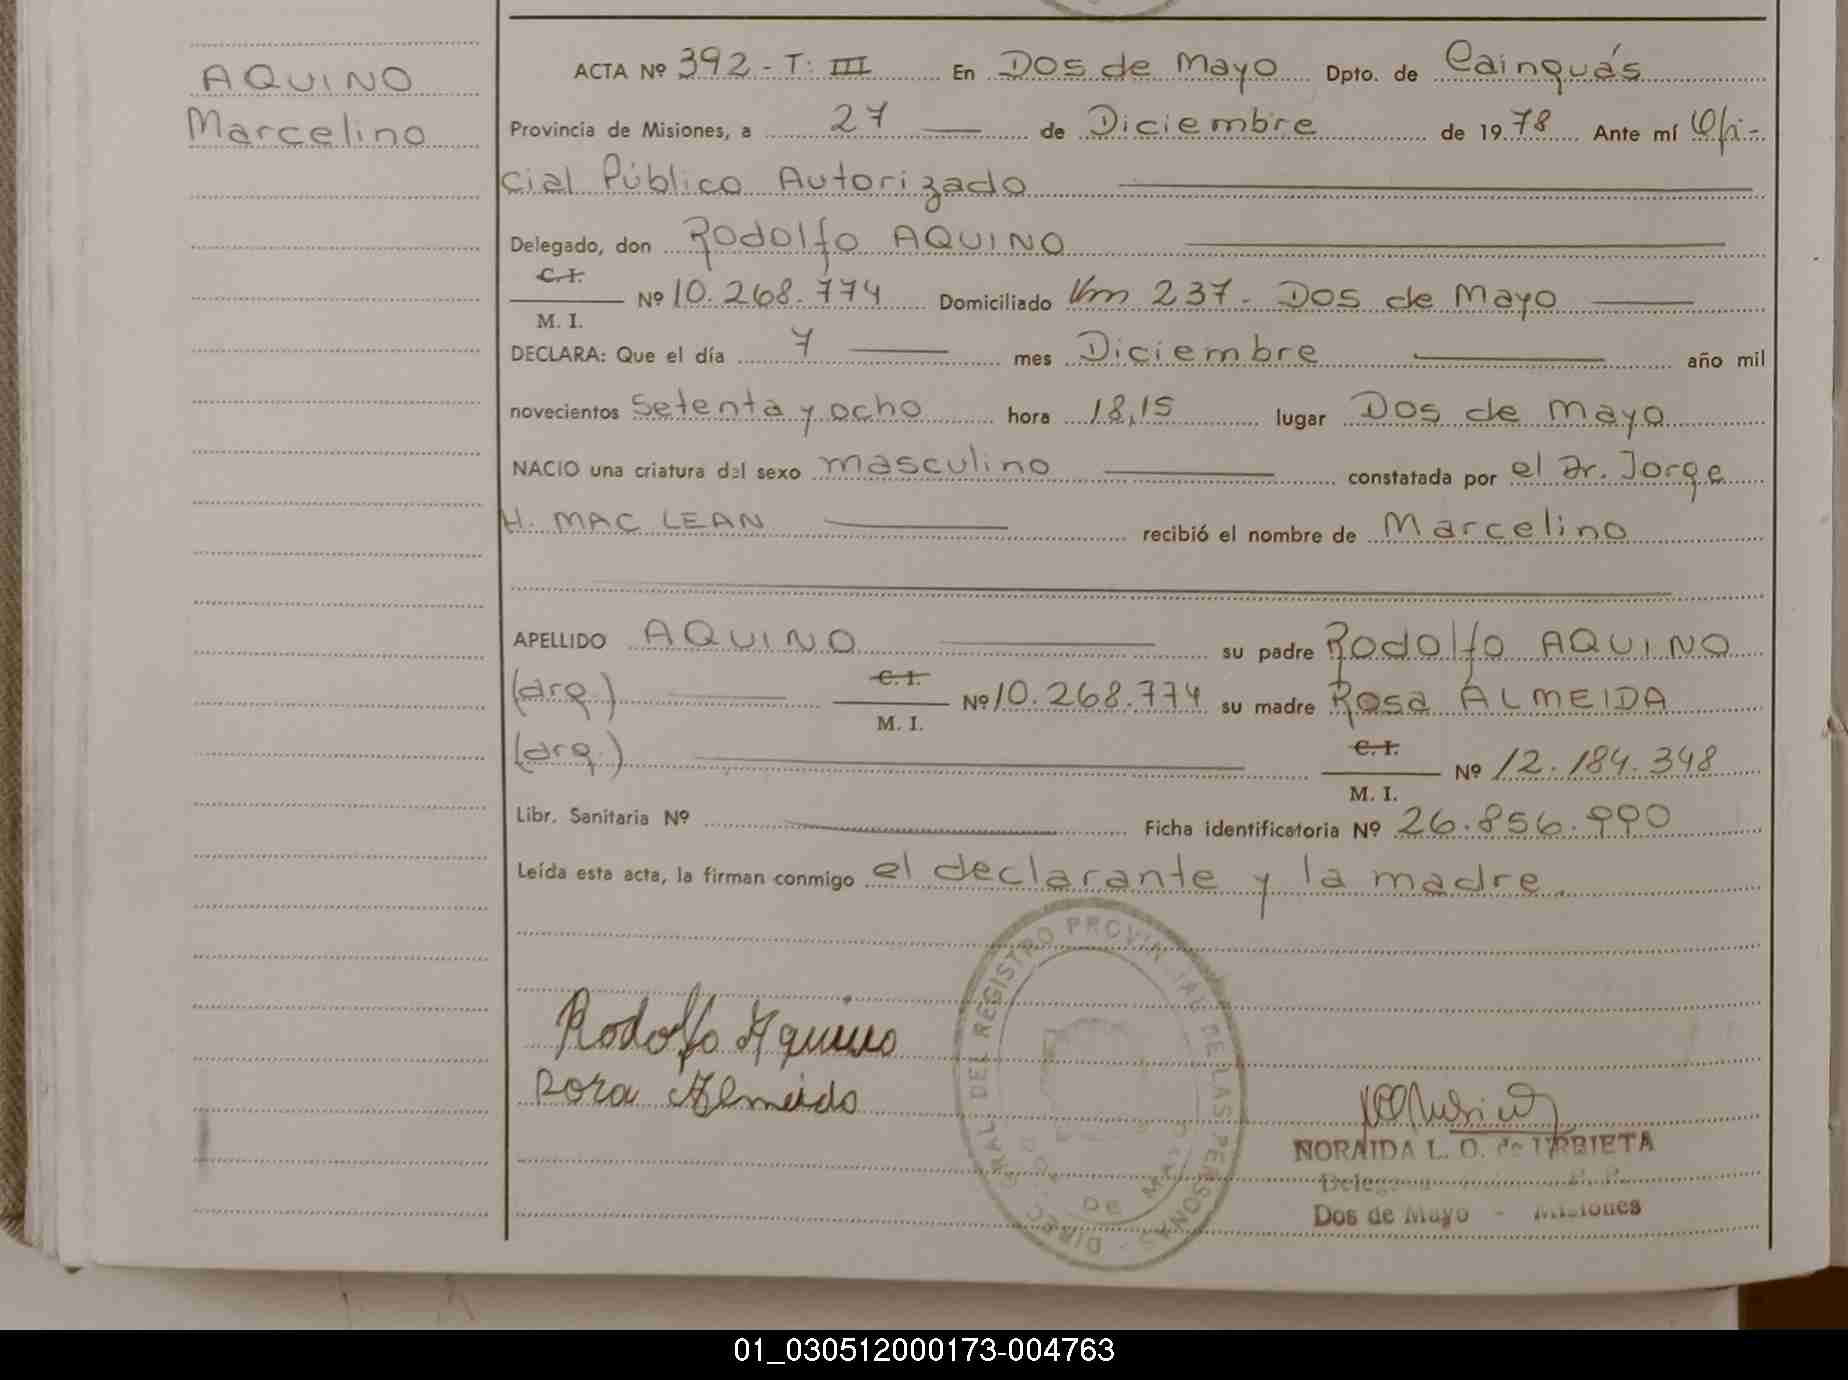 AQUINO
Marcelino
ACTA Nº 392 - T: III En Dos de Mayo Dpto. de Cainguás
Provincia de Misiones, a 27 de Diciembre de 1978 Ante mí Ofi-
cial Público Autorizado
Delegado, don Rodolfo AQUINO
C.I.
M. I. Nº 10.268.774 Domiciliado Km 237 - Dos de Mayo
DECLARA: Que el día 7 mes Diciembre año mil
novecientos setenta y ocho hora 18,15 lugar Dos de Mayo
NACIO una criatura del sexo masculino constatada por el Dr. Jorge
H. MAC LEAN recibió el nombre de Marcelino
APELLIDO AQUINO su padre Rodolfo AQUINO
(arg.) C.I.
M. I. Nº 10.268.774 su madre Rosa ALMEIDA
(arg.) C.I.
M. I. Nº 12.184.348
Libr. Sanitaria Nº Ficha identificatoria Nº 26.856.990
Leída esta acta, la firman conmigo el declarante y la madre.
Rodolfo Aquino
Rosa Almeida
DIREC. GRAL. DEL REGISTRO PROVINCIAL DE LAS PERSONAS
NORAIDA L. O. de URBIETA
Dos de Mayo - Misiones
01_030512000173-004763